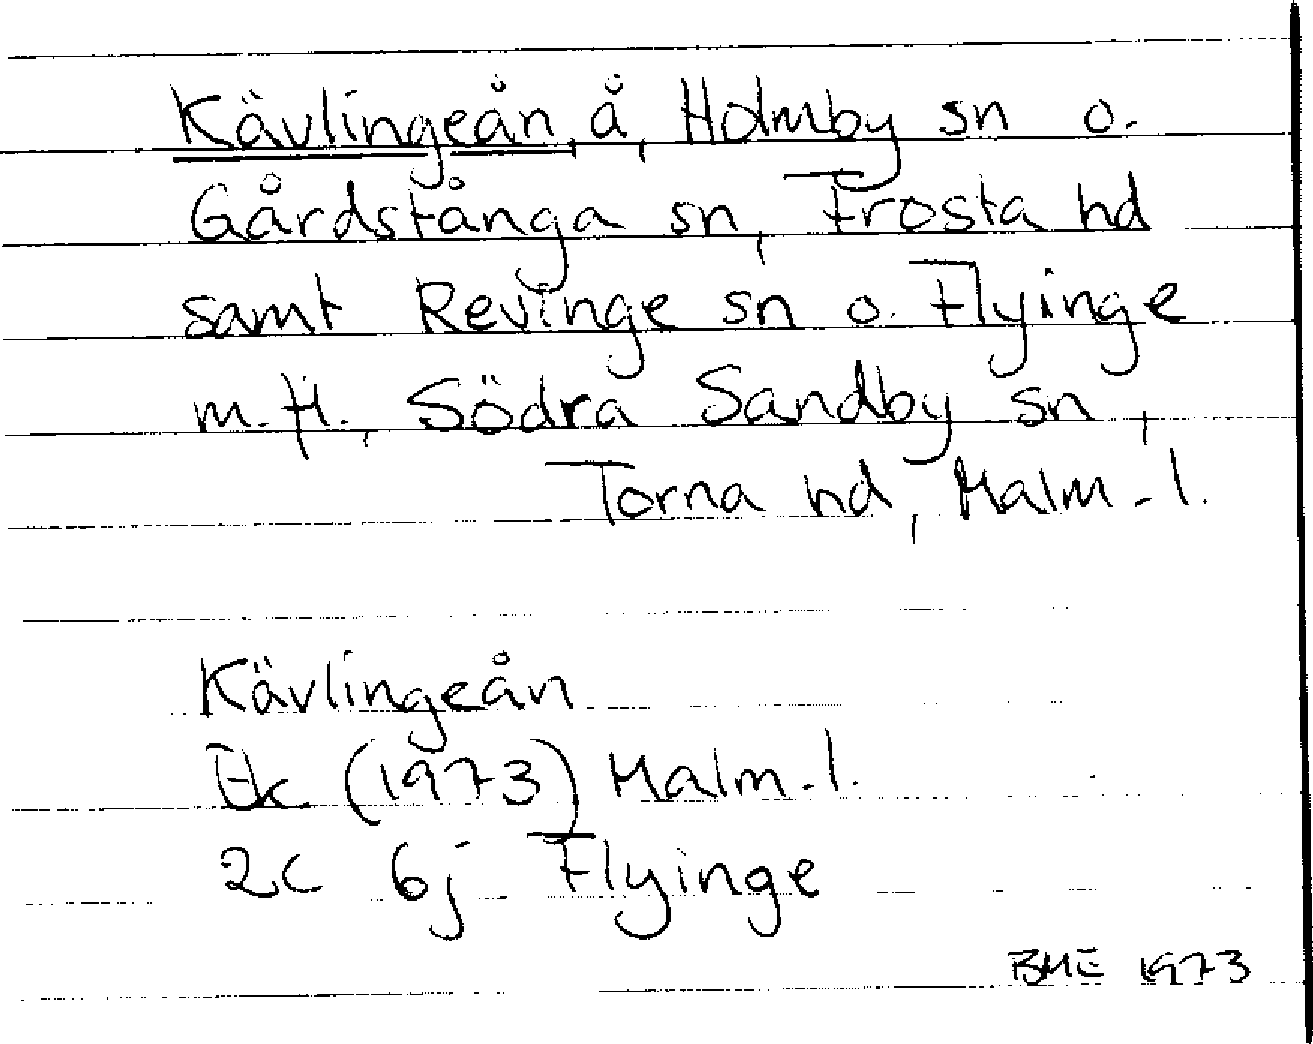 Kävlingeån, å, Holmby sn o.
Gårdstånga sn, Frosta hd
samt Revinge sn o. Flyinge
m.fl., Södra Sandby sn,
Torna hd, Malm-l.
Kävlingeån
Ek (1973) Malm-l.
2C 6j Flyinge
BME 1973